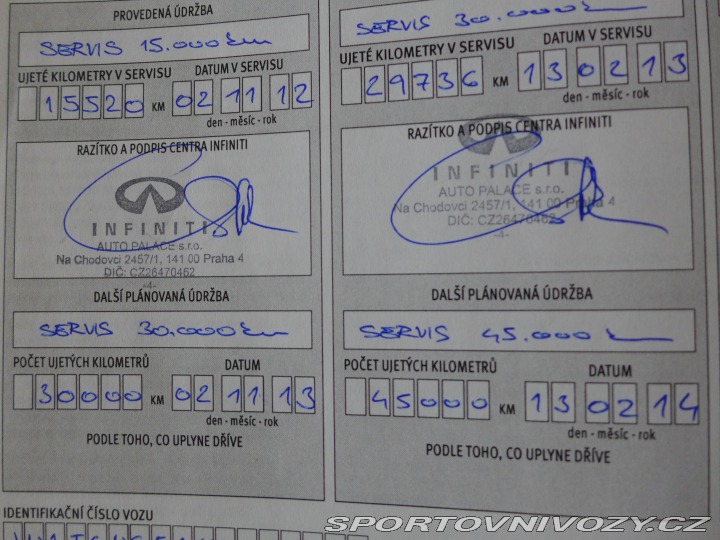 PROVEDENÁ ÚDRŽBA
SERVIS 15.000 km
UJETÉ KILOMETRY V SERVISU DATUM V SERVISU
15520 KM 02 11 12
den - měsíc - rok
RAZÍTKO A PODPIS CENTRA INFINITI
INFINITI
AUTO PALACE s.r.o.
Na Chodovci 2457/1, 141 00 Praha 4
DIČ: CZ26470462
-4-
DALŠÍ PLÁNOVANÁ ÚDRŽBA
SERVIS 30.000 km
POČET UJETÝCH KILOMETRŮ DATUM
30000 KM 02 11 13
den - měsíc - rok
PODLE TOHO, CO UPLYNE DŘÍVE
IDENTIFIKAČNÍ ČÍSLO VOZU
SERVIS 30.000 km
UJETÉ KILOMETRY V SERVISU DATUM V SERVISU
29736 KM 13 02 13
den - měsíc - rok
RAZÍTKO A PODPIS CENTRA INFINITI
INFINITI
AUTO PALACE s.r.o.
Na Chodovci 2457/1, 141 00 Praha 4
DIČ: CZ26470462
-4-
DALŠÍ PLÁNOVANÁ ÚDRŽBA
SERVIS 45.000 km
POČET UJETÝCH KILOMETRŮ DATUM
45000 KM 13 02 14
den - měsíc - rok
PODLE TOHO, CO UPLYNE DŘÍVE
SPORTOVNIVOZY.CZ